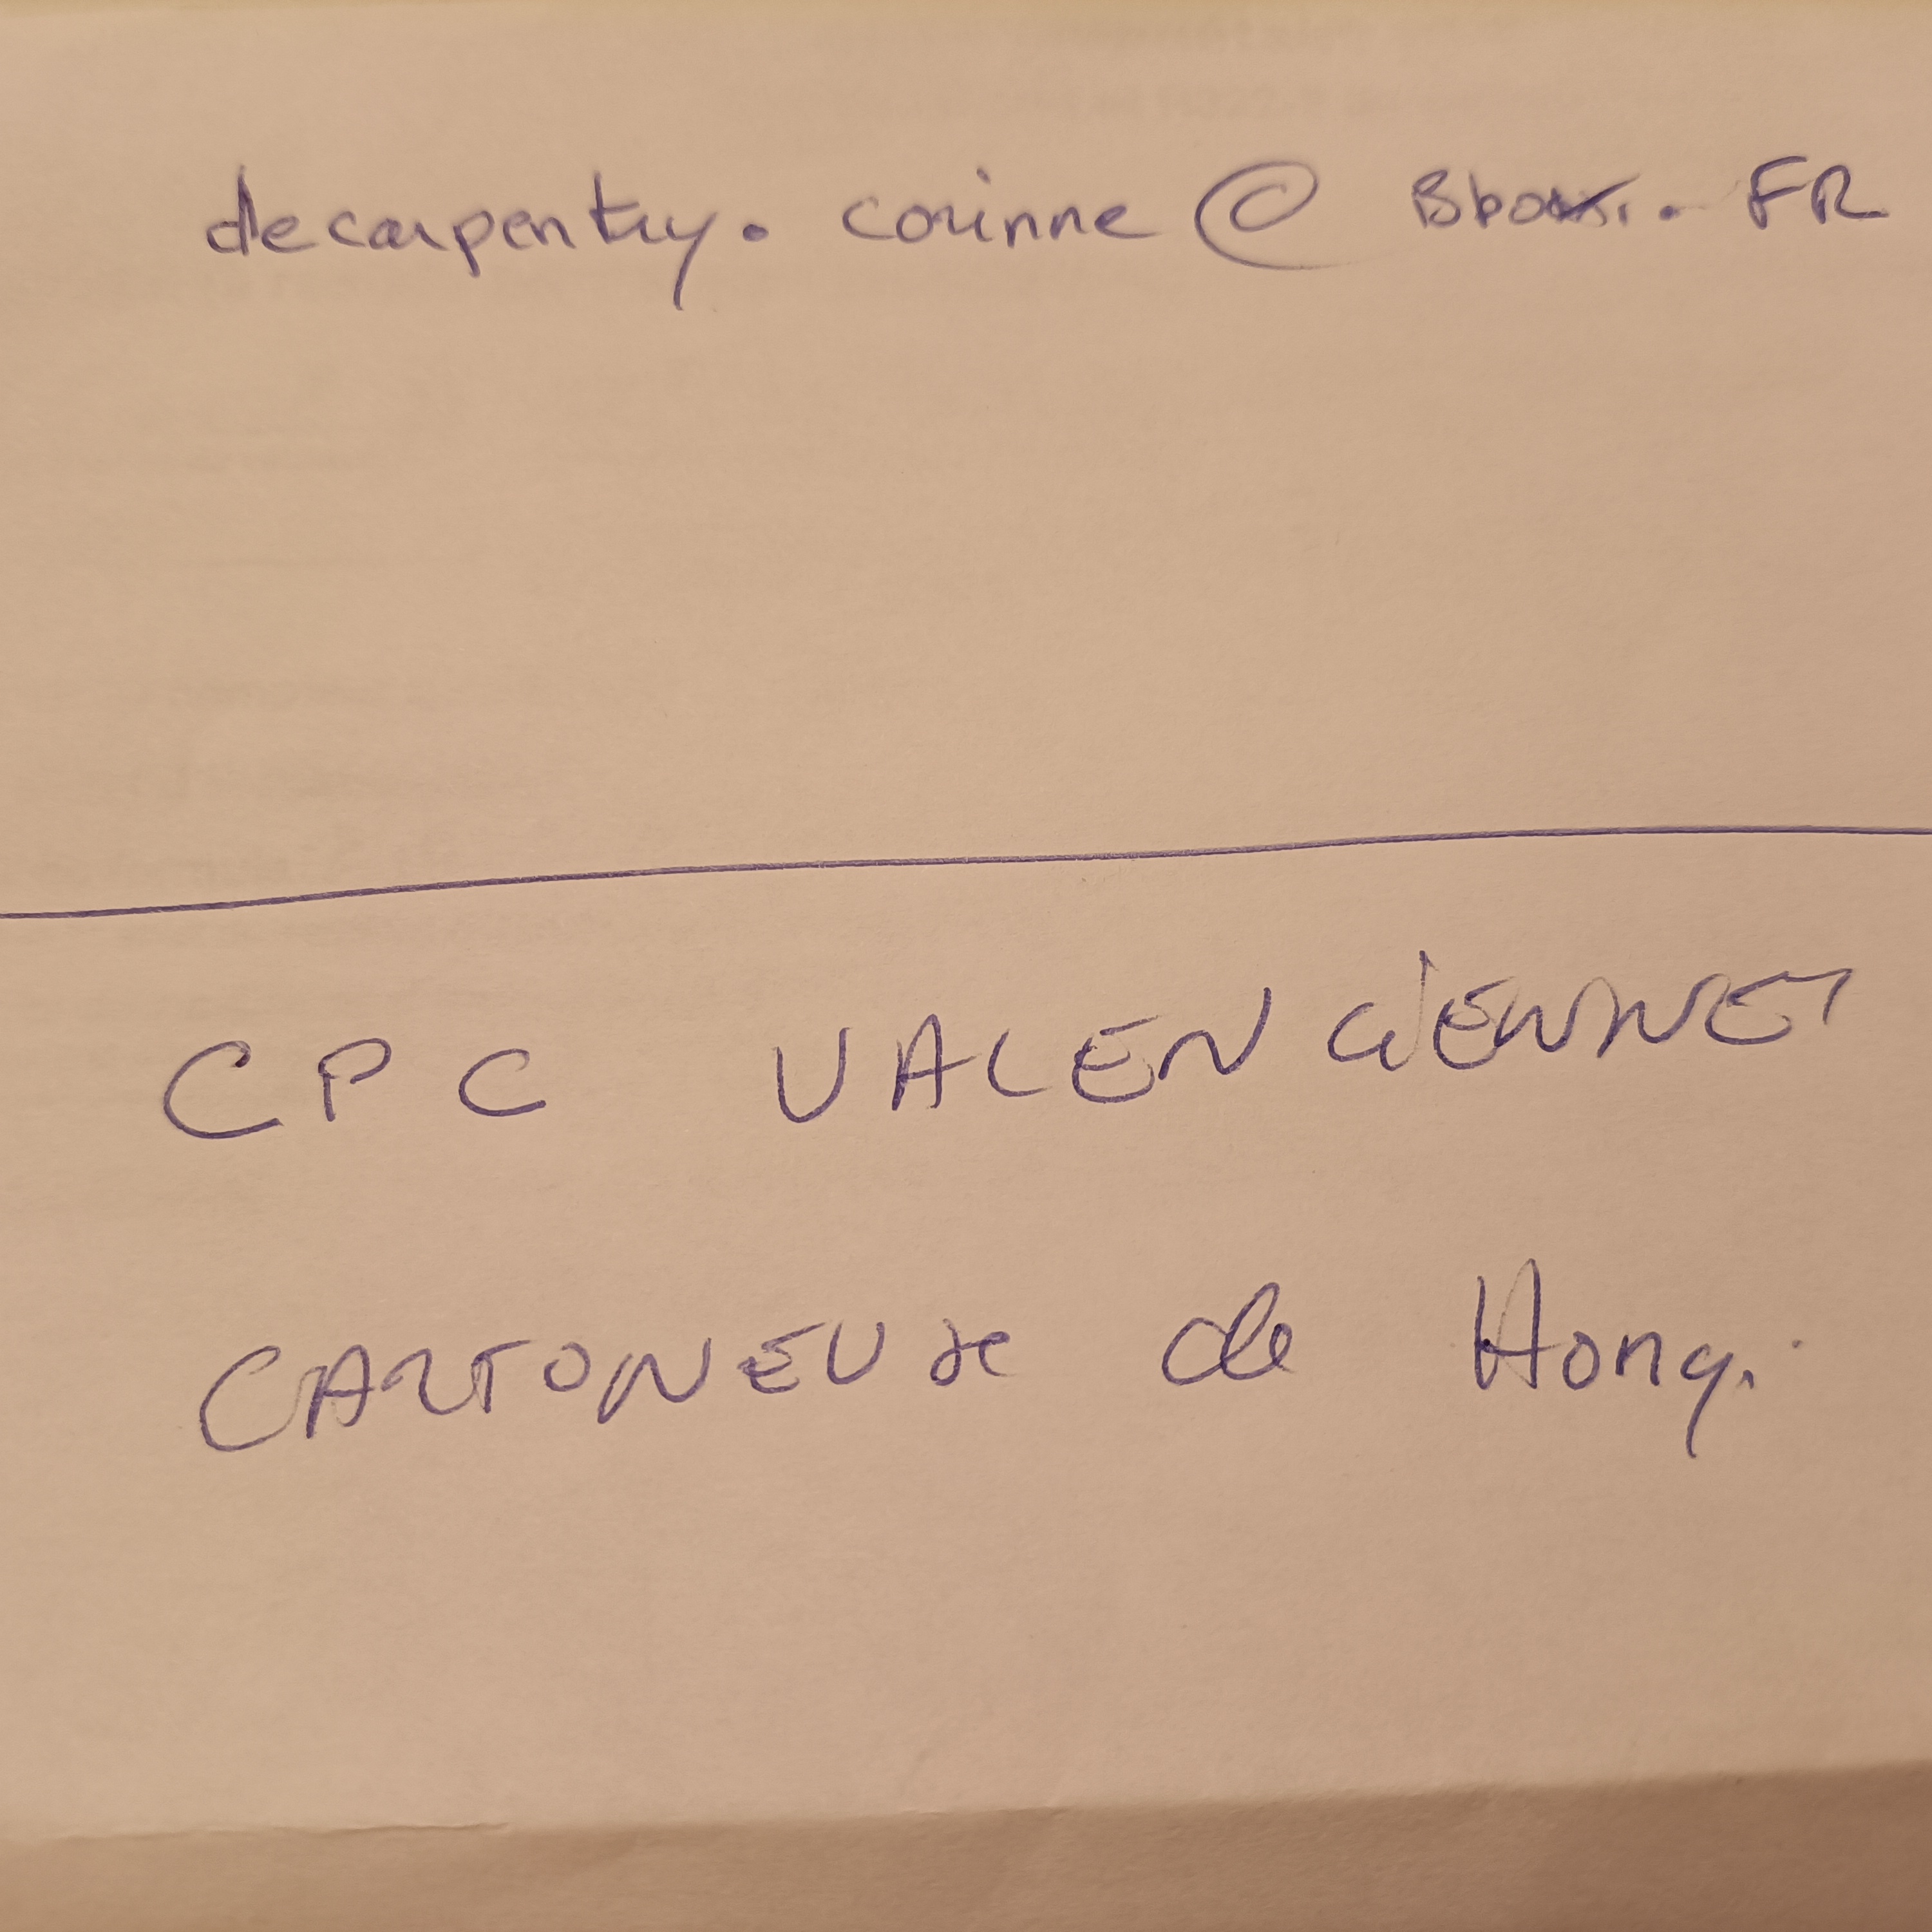 decarpentry. corinne @ Bbox. FR
CPC VALENCIENNES
CARTONEUse de Hong.